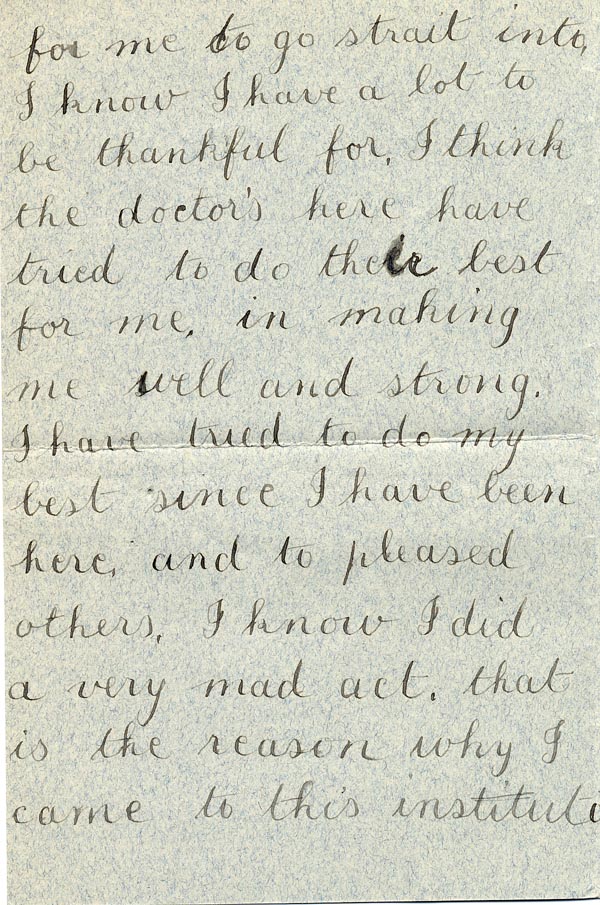 for me to go strait into,
I know I have a lot to
be thankful for, I think
the doctor's here have
tried to do their best
for me, in making
me well and strong.
I have tried to do my
best since I have been
here, and to pleased
others, I know I did
a very mad act. that
is the reason why I
came to this instituti